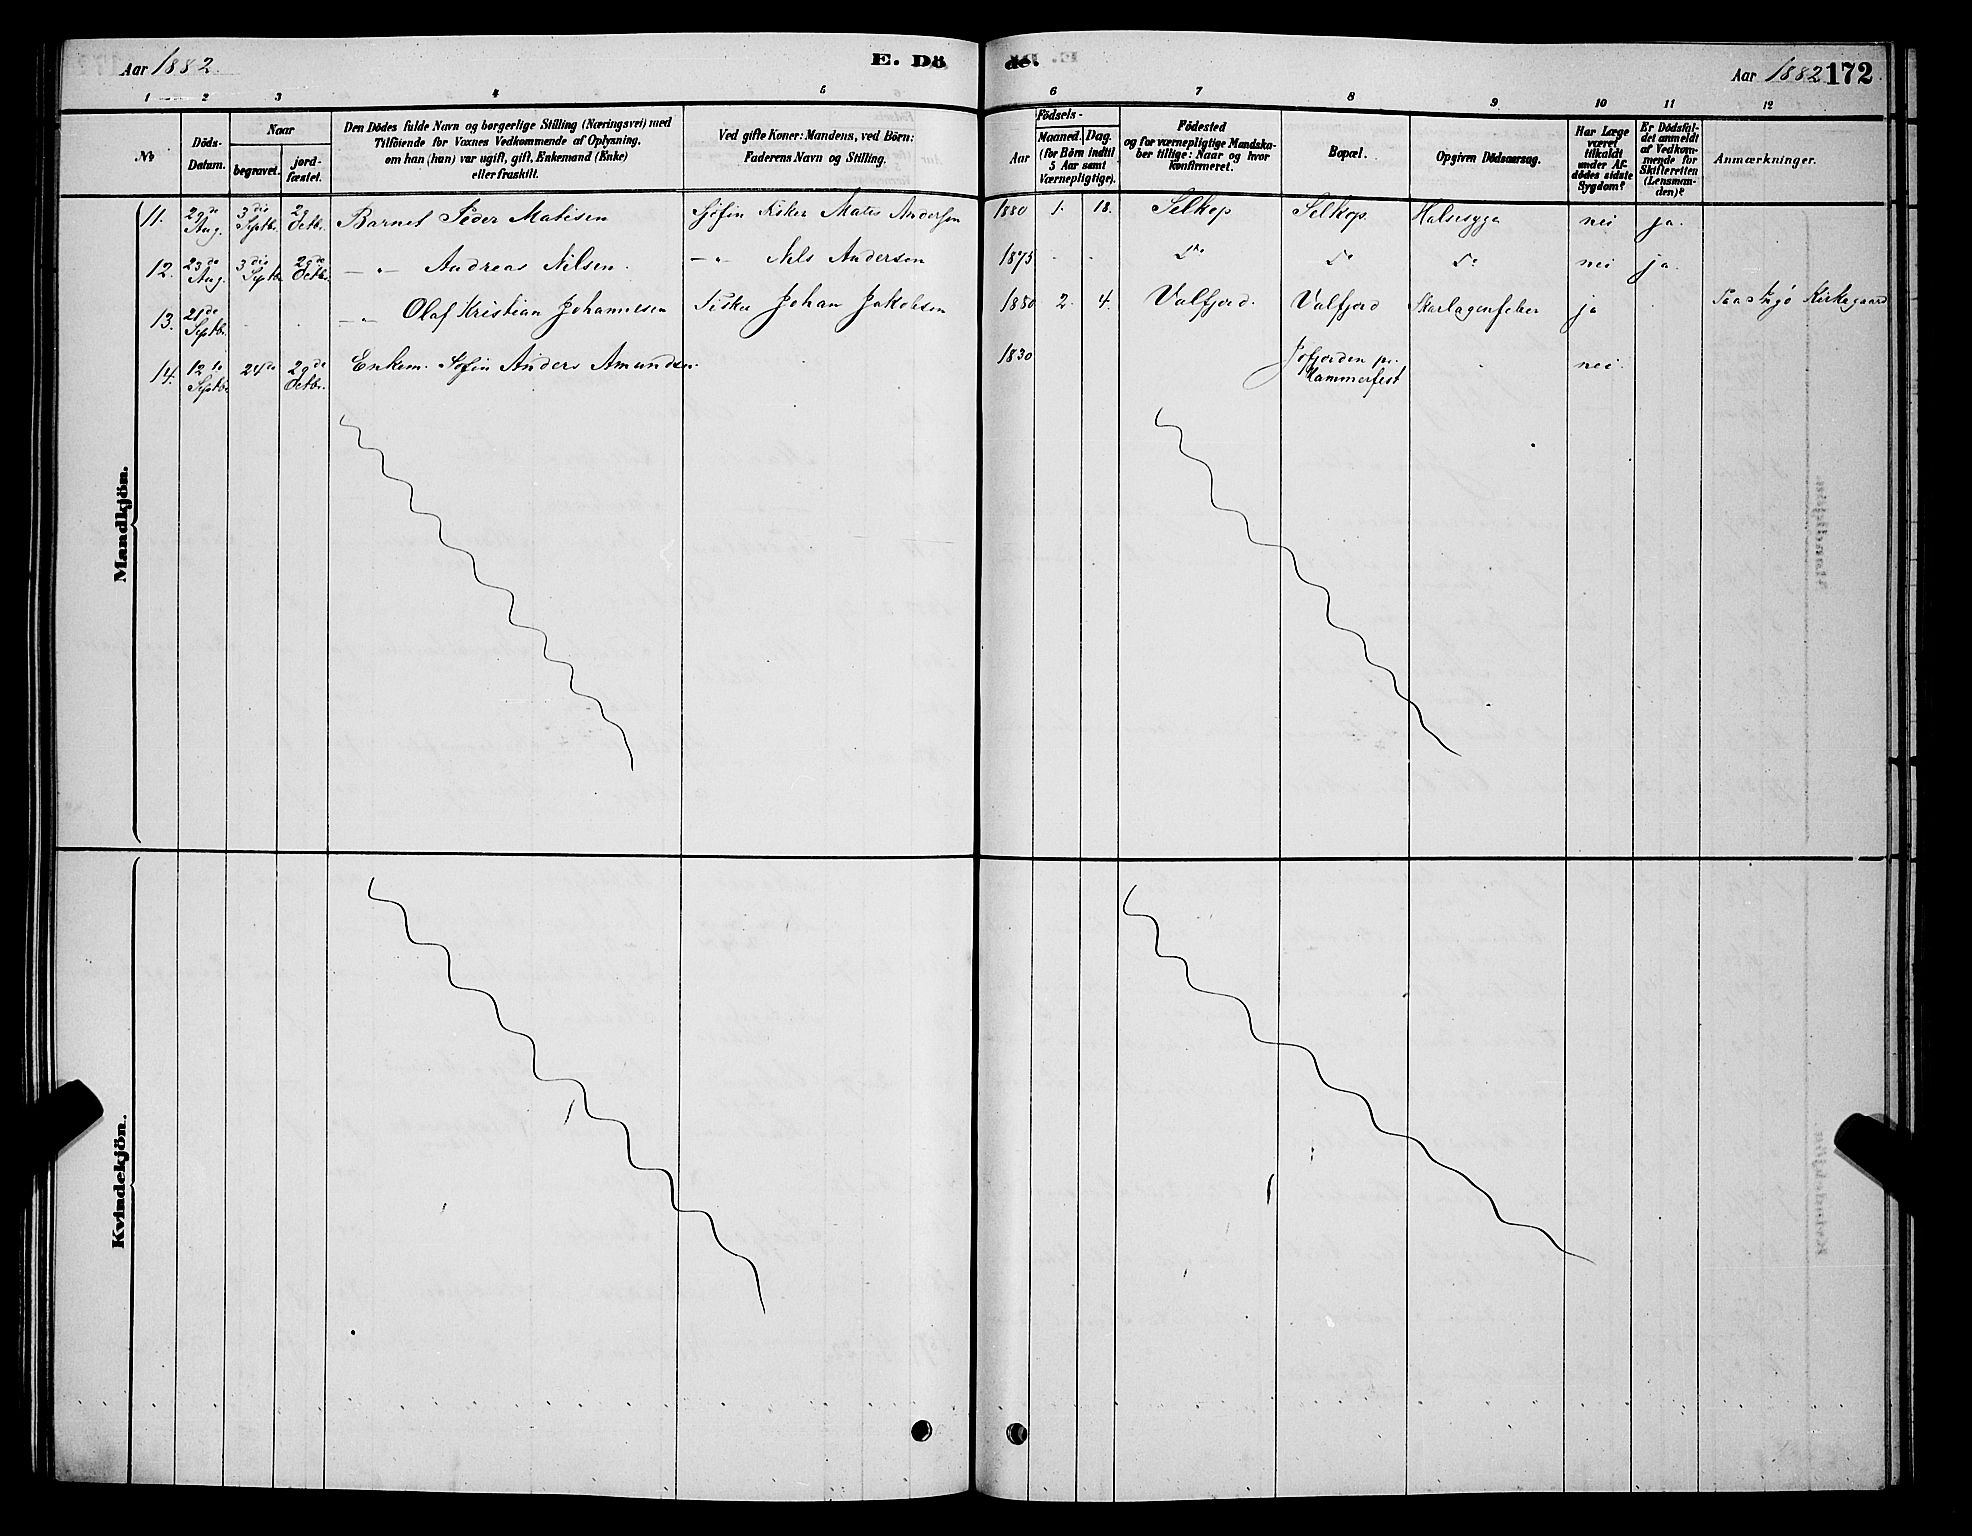 Aar 1882. E. Dö de. Aar 1882 172
1 2 3 4 5 6 7 8 9 10 11 12
№
Döds-Datum.
Naar
begravet.
jord-fæstet.
Den Dödes fulde Navn og borgerlige Stilling (Næringsvei) med
Tilföiende for Voxnes Vedkommende af Oplysning,
om han (hun) var ugift, gift, Enkemand (Enke)
eller fraskilt.
Ved gifte Koner: Mandens, ved Börn:
Faderens Navn og Stilling.
Aar
Födsels-
Maaned. Dag.
(for Börn indtil
5 Aar samt
Værnepligtige).
Födested
og for værnepligtige Mandska-
ber tillige: Naar og hvor
konfirmeret.
Bopæl.
Opgiven Dödsaarsag.
Har Læge
været
tilkaldt
under Af-
dödes sidste
Sygdom?
Er Dödsfal-
det anmeldt
af Vedkom-
mende for
Skifteretten
(Lensman-
den)?
Anmærkninger.
Mandkjön.
11. 29de Aug. 3die Septbr. 29 Octbr. Barnet Peder Matisen Sjöfin Fisker Mates Andersen 1880 1. 18. Selkop Selkop Halssyge nei ja.
12. 23de Aug. 3die Septbr. 29de Octbr. — „ — Andreas Nilsen. — „ — Nils Andersen 1875 - - Do Do Do nei ja
13. 21de Septbr. - - — „ — Olaf Kristian Johannesen Fisker Johan Jakobsen 1880 2. 4. Valfjord. Valfjord Skarlagenfeber ja - Paa Ingö Kirkegaard
14. 12te Septbr. 24de 29de Octbr. Enkem. Söfin Anders Amundsen. 1830 Jöfjorden pr. Hammerfest nei.
Kvindekjön.